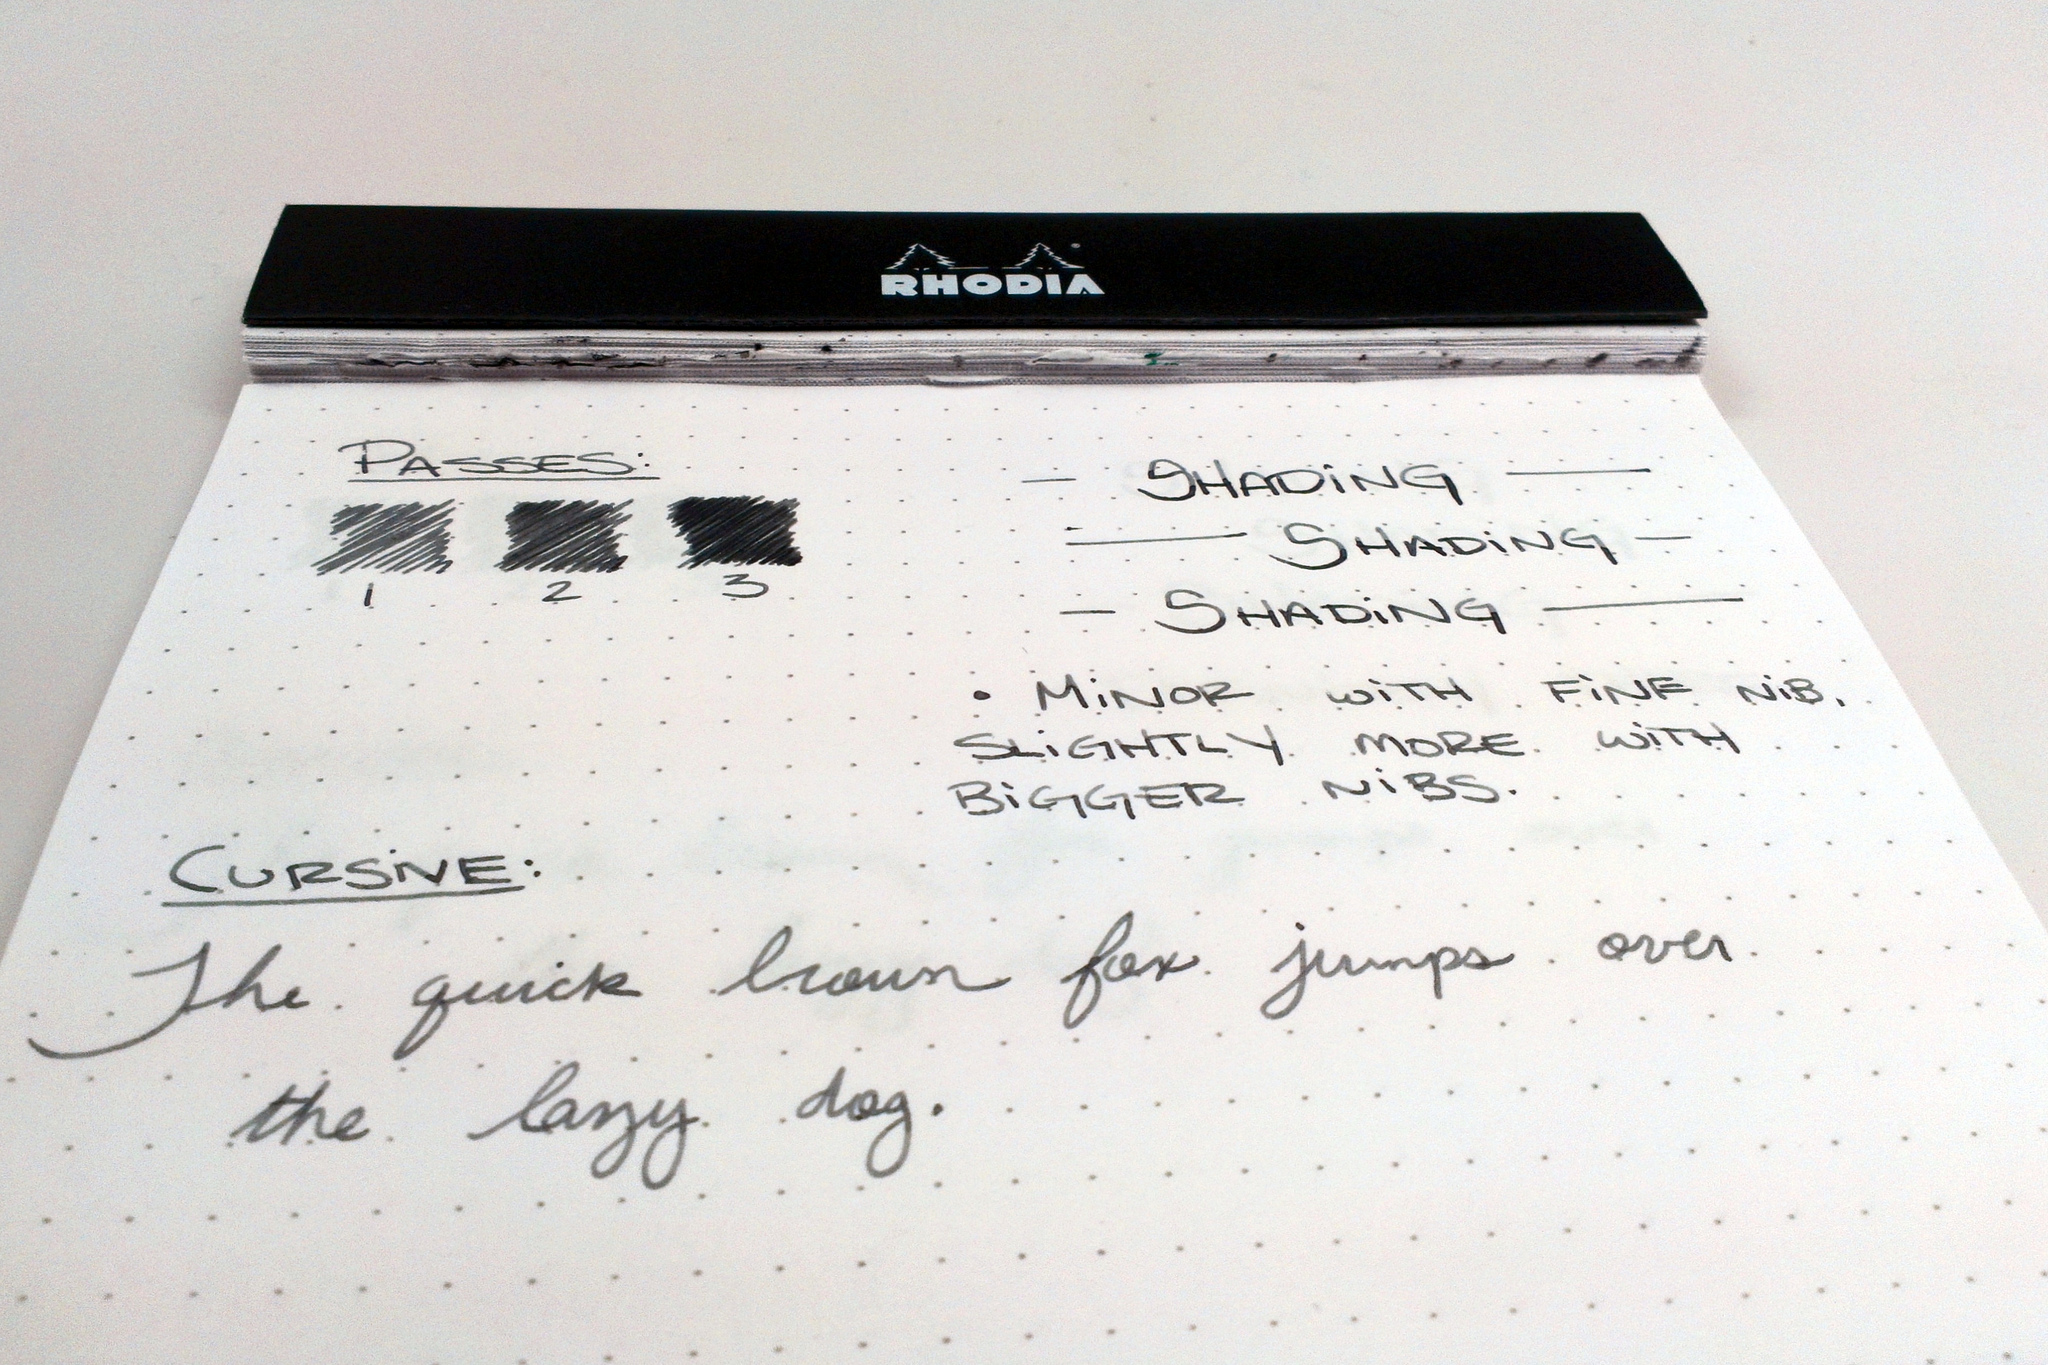 RHODIA
PASSES:
1 2 3
— SHADiNG —
— SHADiNG —
— SHADiNG —
• MiNOR WiTH FiNE NiB,
SLiGHTLY MORE WiTH
BiGGER NiBS.
CURSiVE:
The quick brown fox jumps over
the lazy dog.